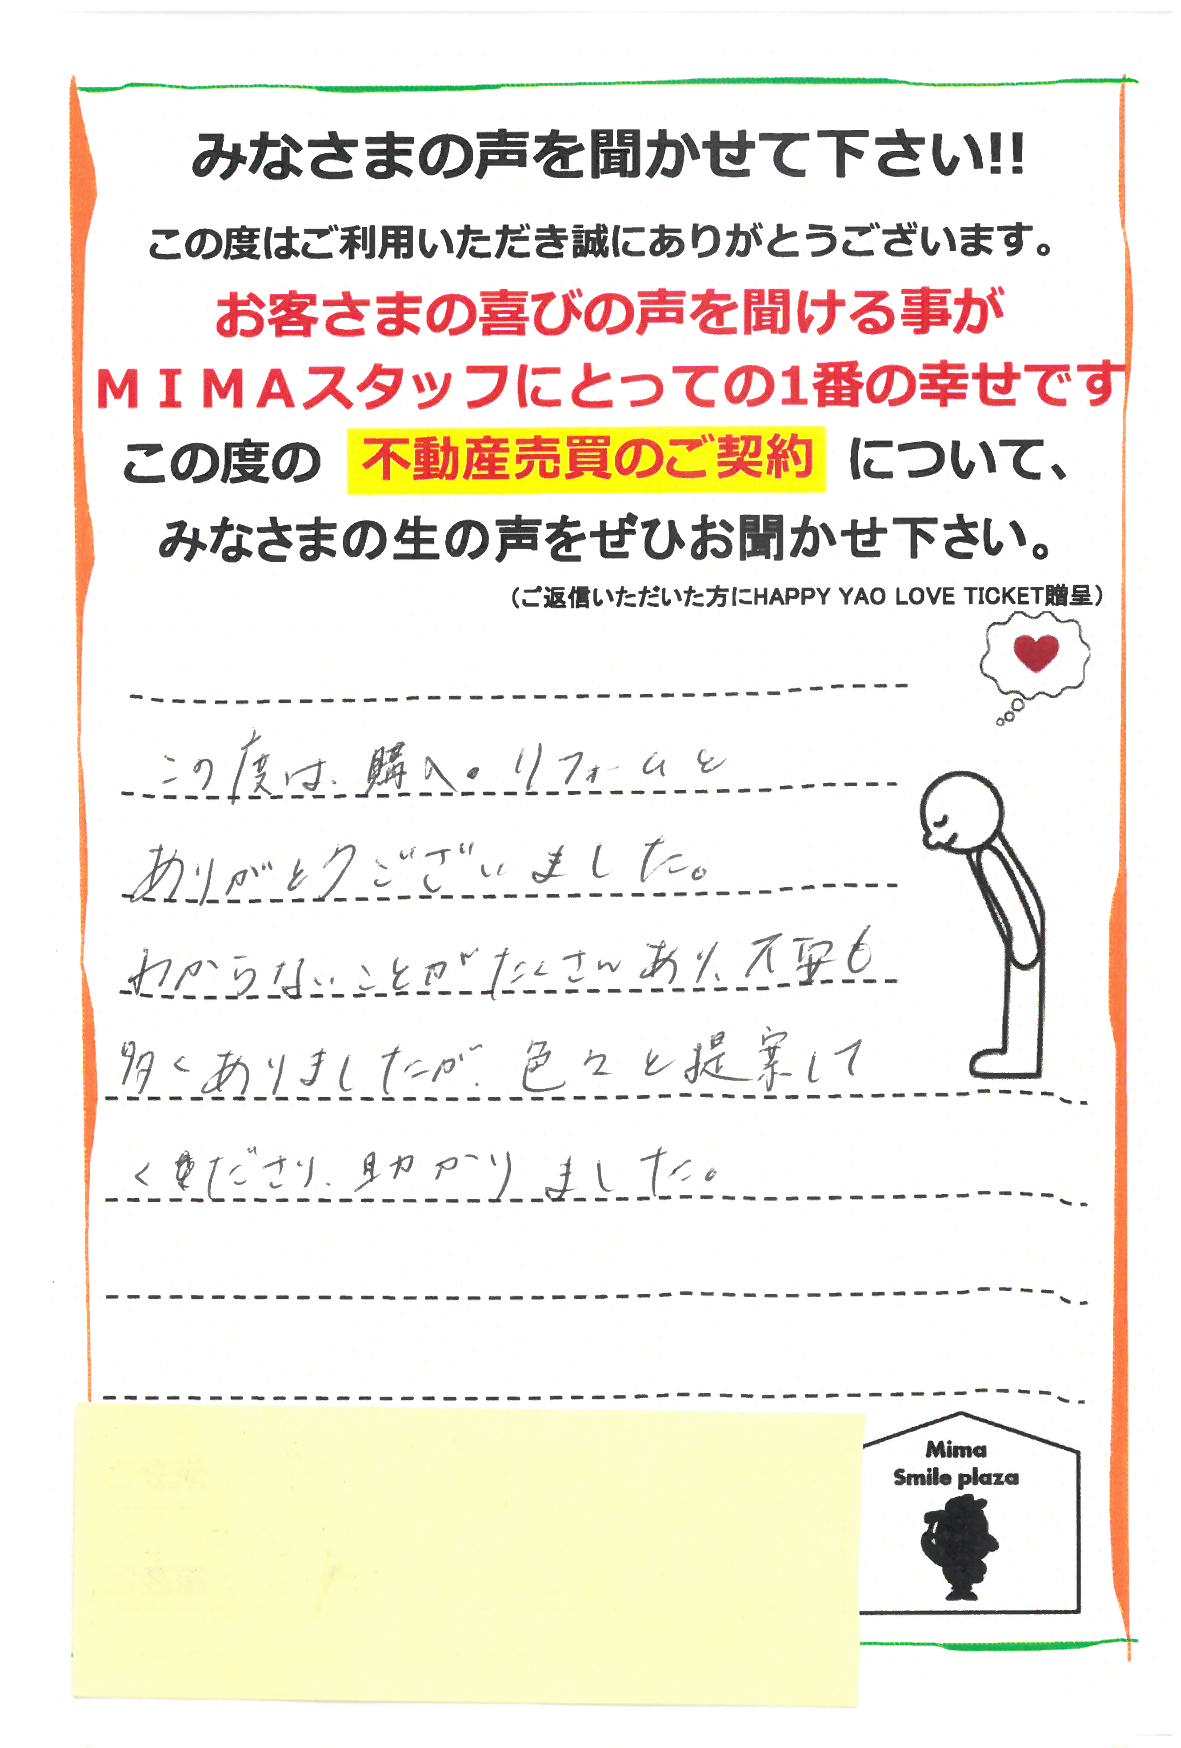 みなさまの声を聞かせて下さい!!
この度はご利用いただき誠にありがとうございます。
お客さまの喜びの声を聞ける事が
ＭＩＭＡスタッフにとっての1番の幸せです
この度の 不動産売買のご契約 について、
みなさまの生の声をぜひお聞かせ下さい。
（ご返信いただいた方にHAPPY YAO LOVE TICKET贈呈）
この度は、購入・リフォームと
ありがとうございました。
わからないことがたくさんあり、不安も
多くありましたが、色々と提案して
くださり、助かりました。
Mima
Smile plaza